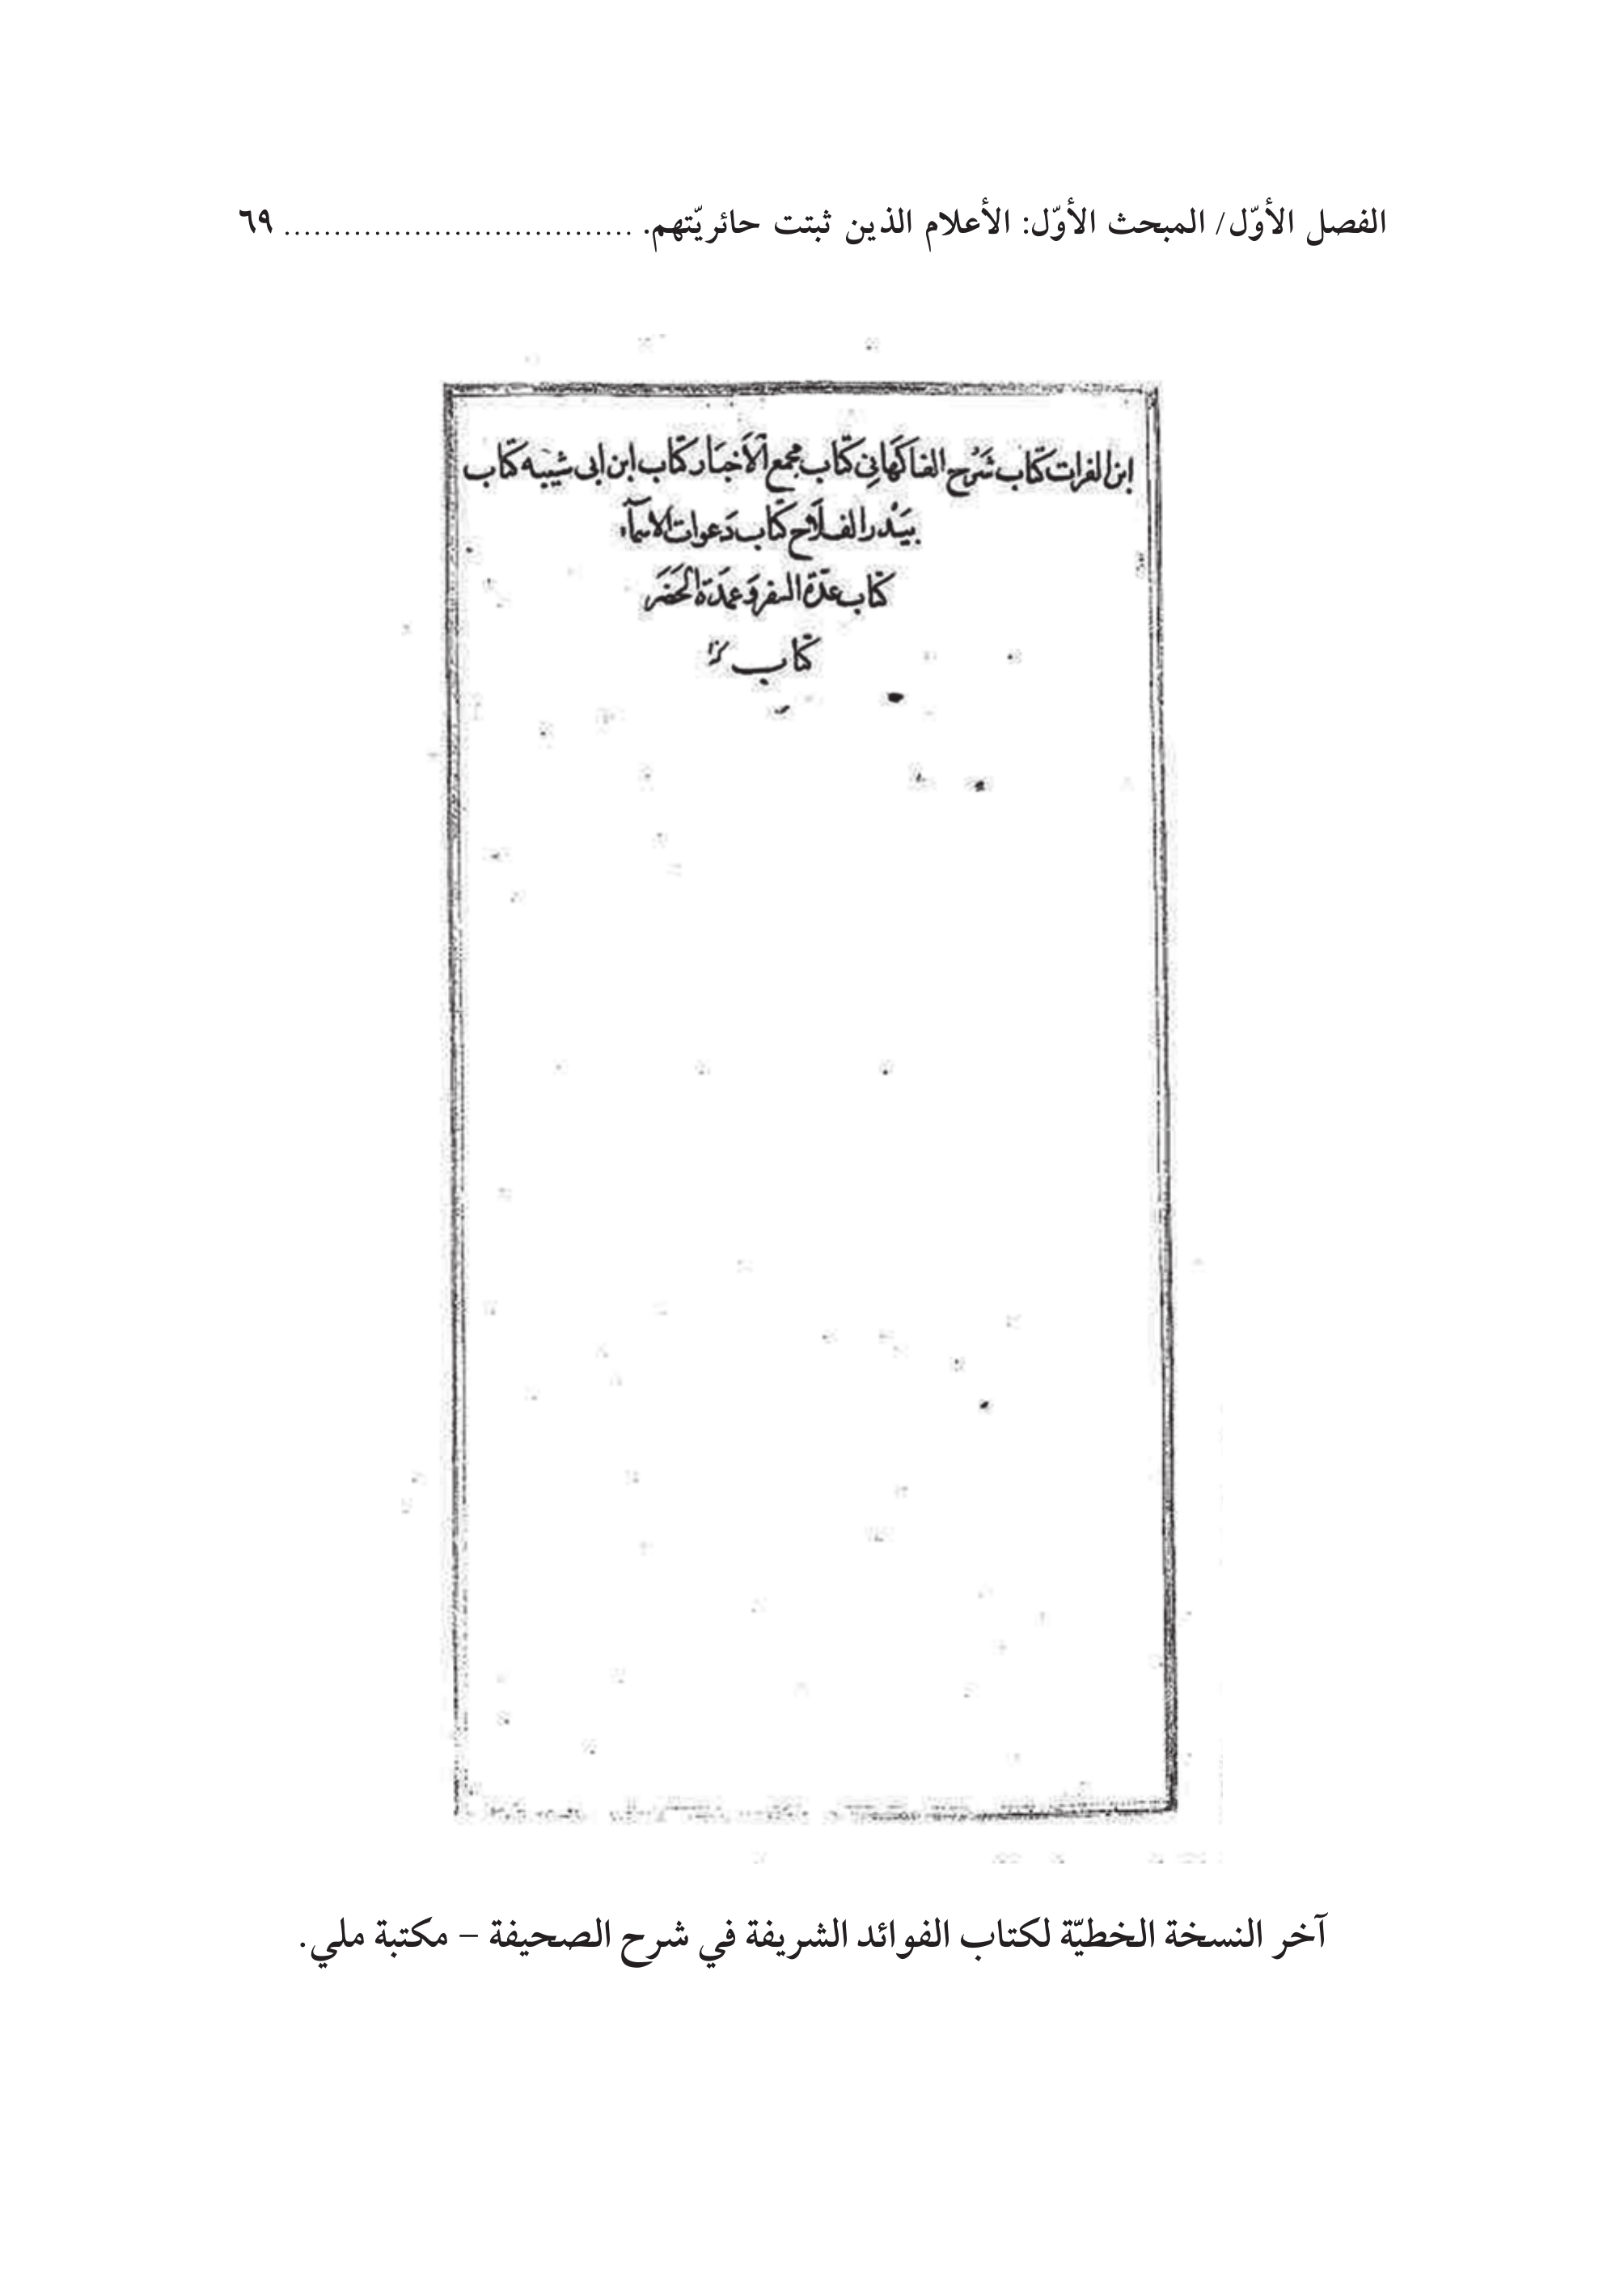 الفصل الأوّل/ المبحث الأوّل: الأعلام الذين ثبتت حائريّتهم. .................................. ٦٩
ابن الفرات كتاب شَرْح الفاكهاني كتاب مجمع الأخبار كتاب ابن ابى شيبه كتاب
بَيْدر الفلاح كتاب دَعوات الاسمآء
كتاب عدّة السفر وَعمدَة الحَضَر
كتاب
آخر النسخة الخطيّة لكتاب الفوائد الشريفة في شرح الصحيفة – مكتبة ملي.